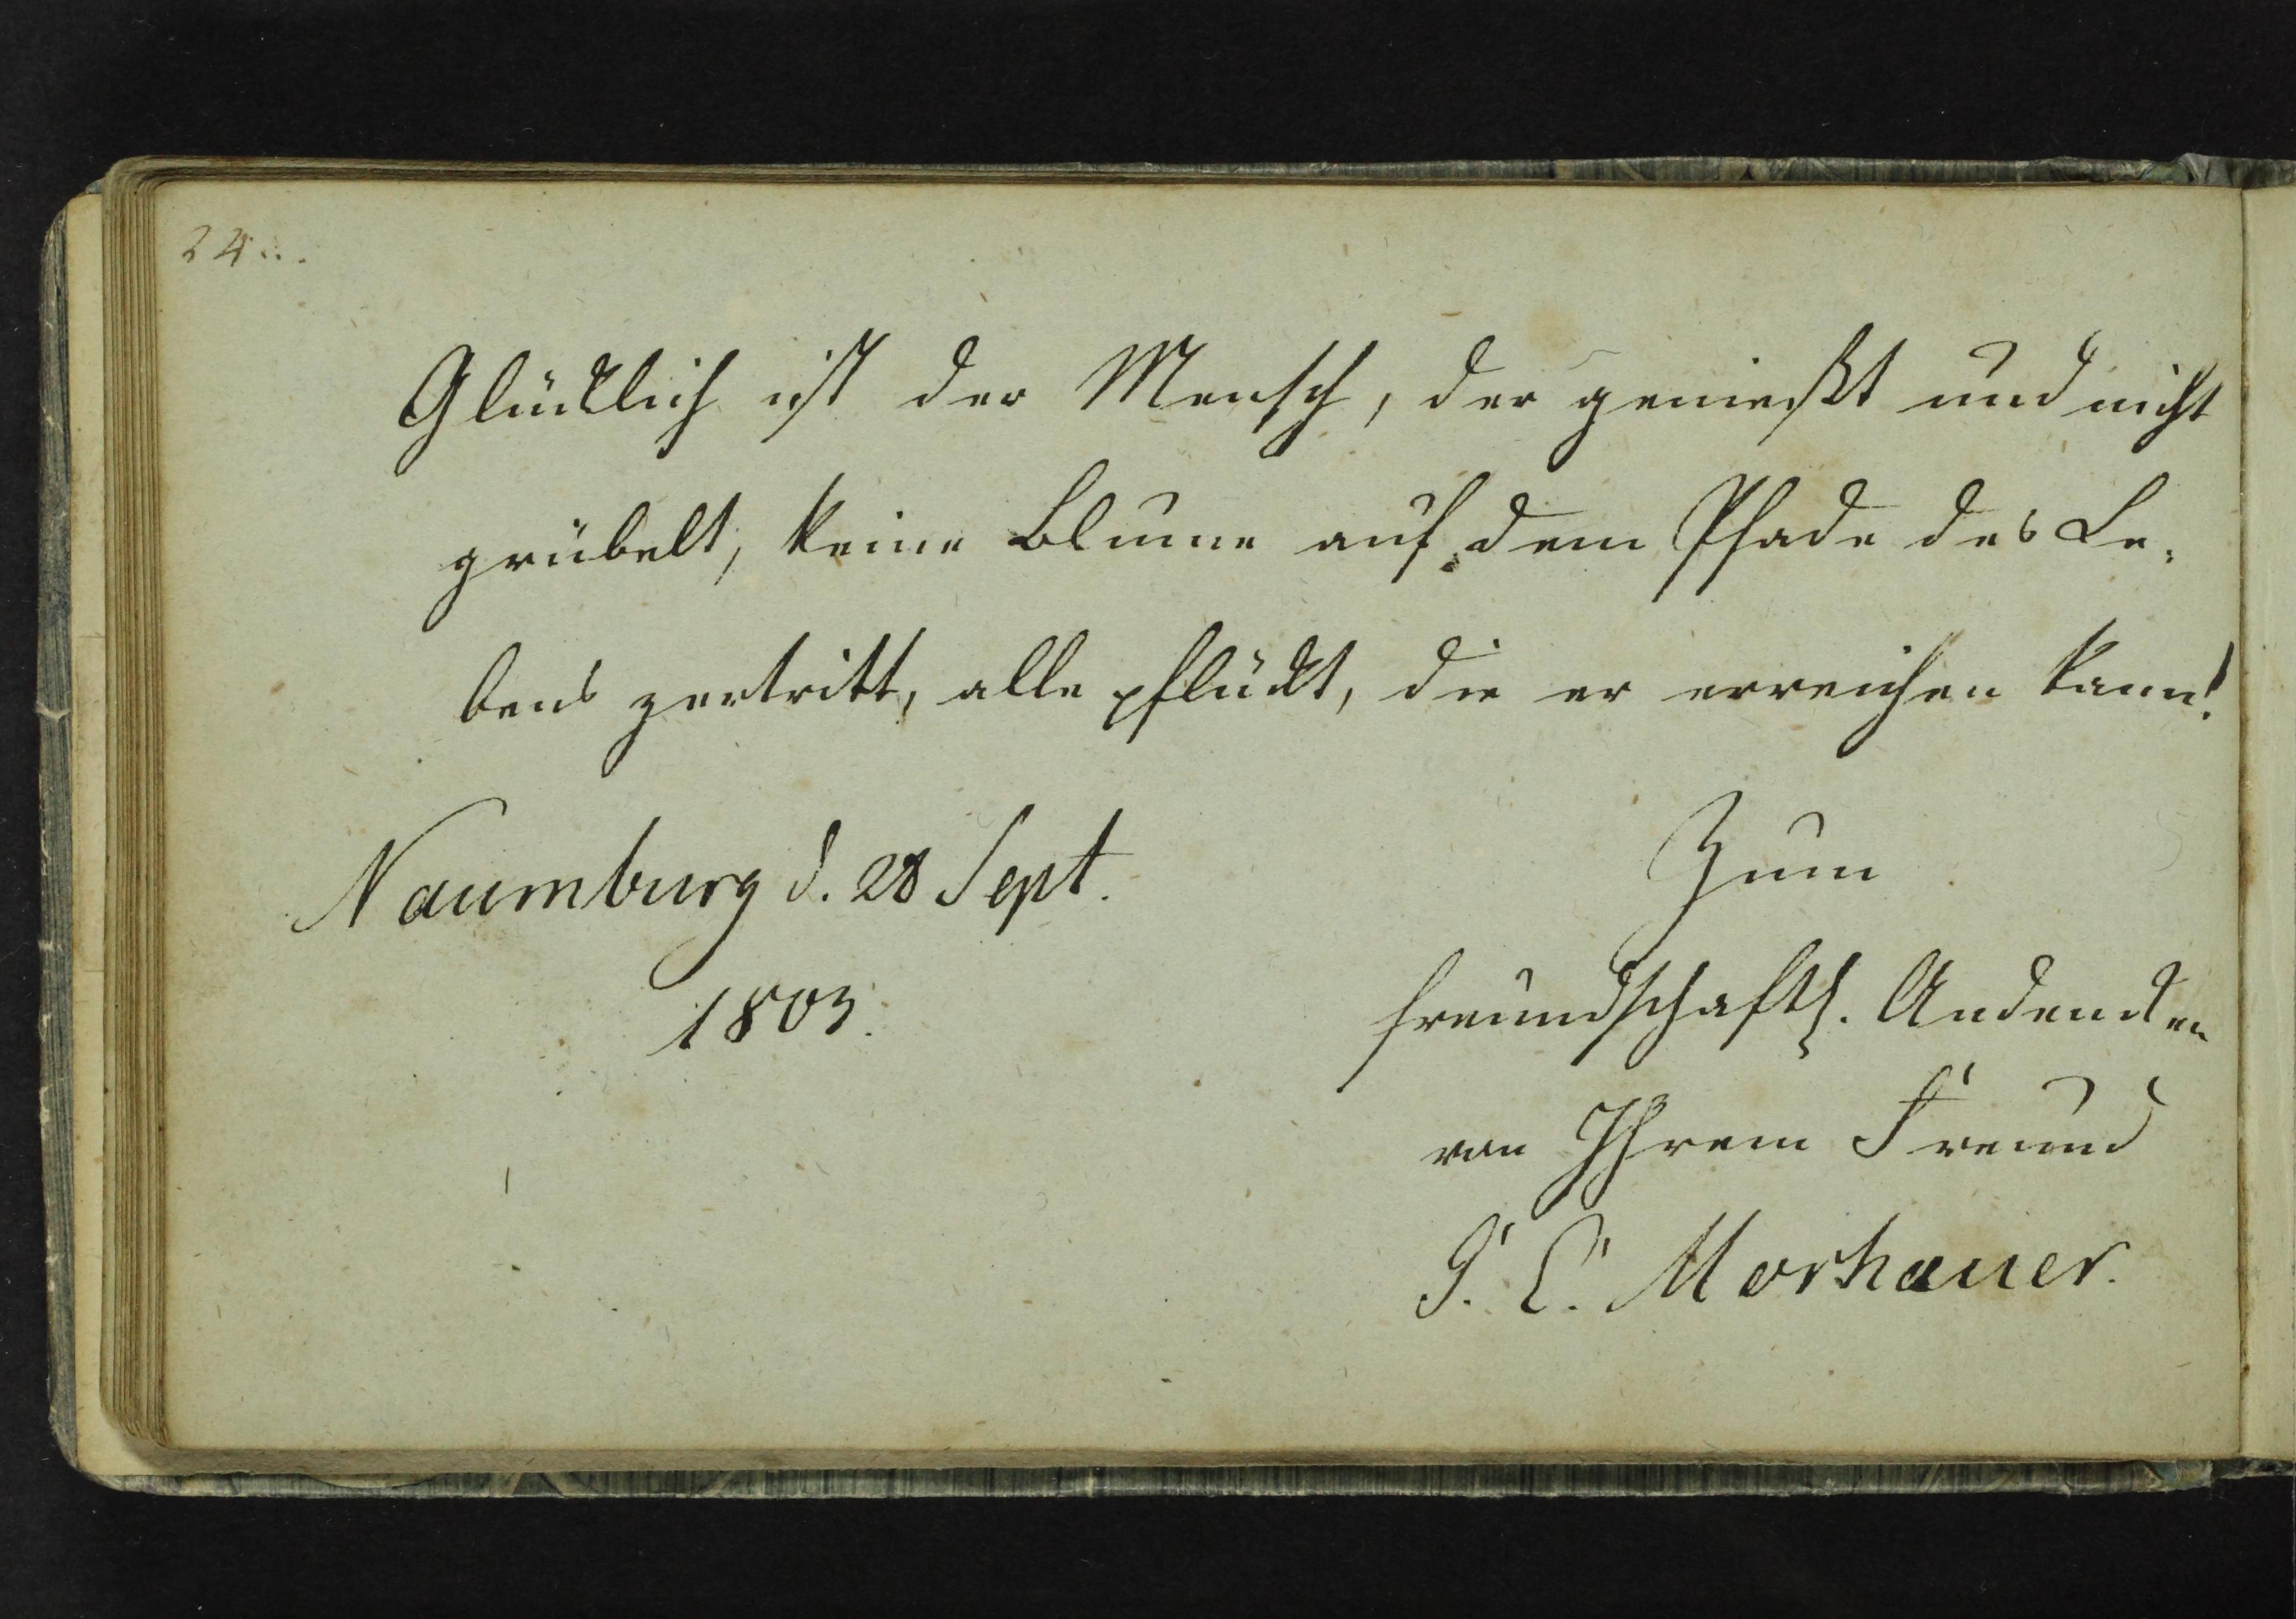 24...
Glücklich ist der Mensch, der genießt und nicht
grübelt, keine Blume auf dem Pfade des Le-
bens zertritt, alle pflückt, die er erreichen kann!
Naumburg d. 28 Sept.
1803.
Zum
freundschaftl. Andencken
von Ihrem Freund
G. C. Morhauer.